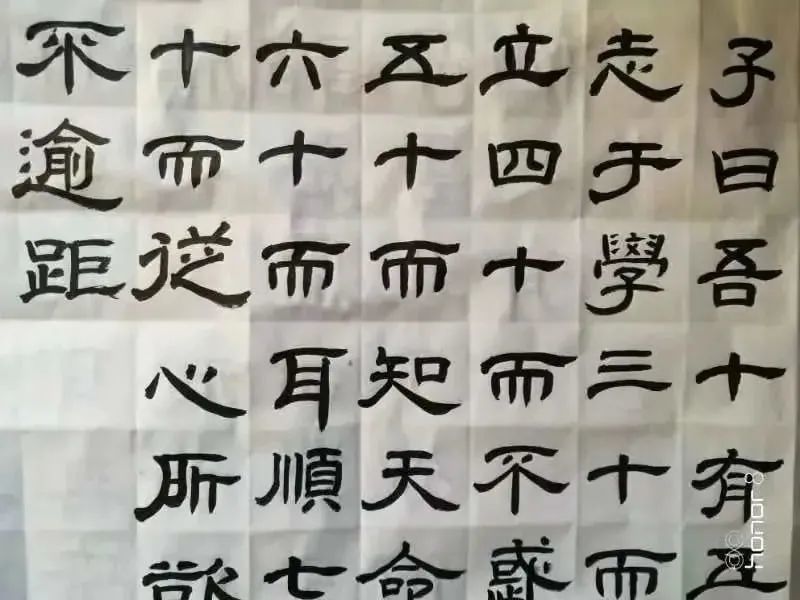 子曰吾十有五
志于學三十而
立四十而不惑
五十而知天命
六十而耳順七
十而從心所欲
不逾距
honor